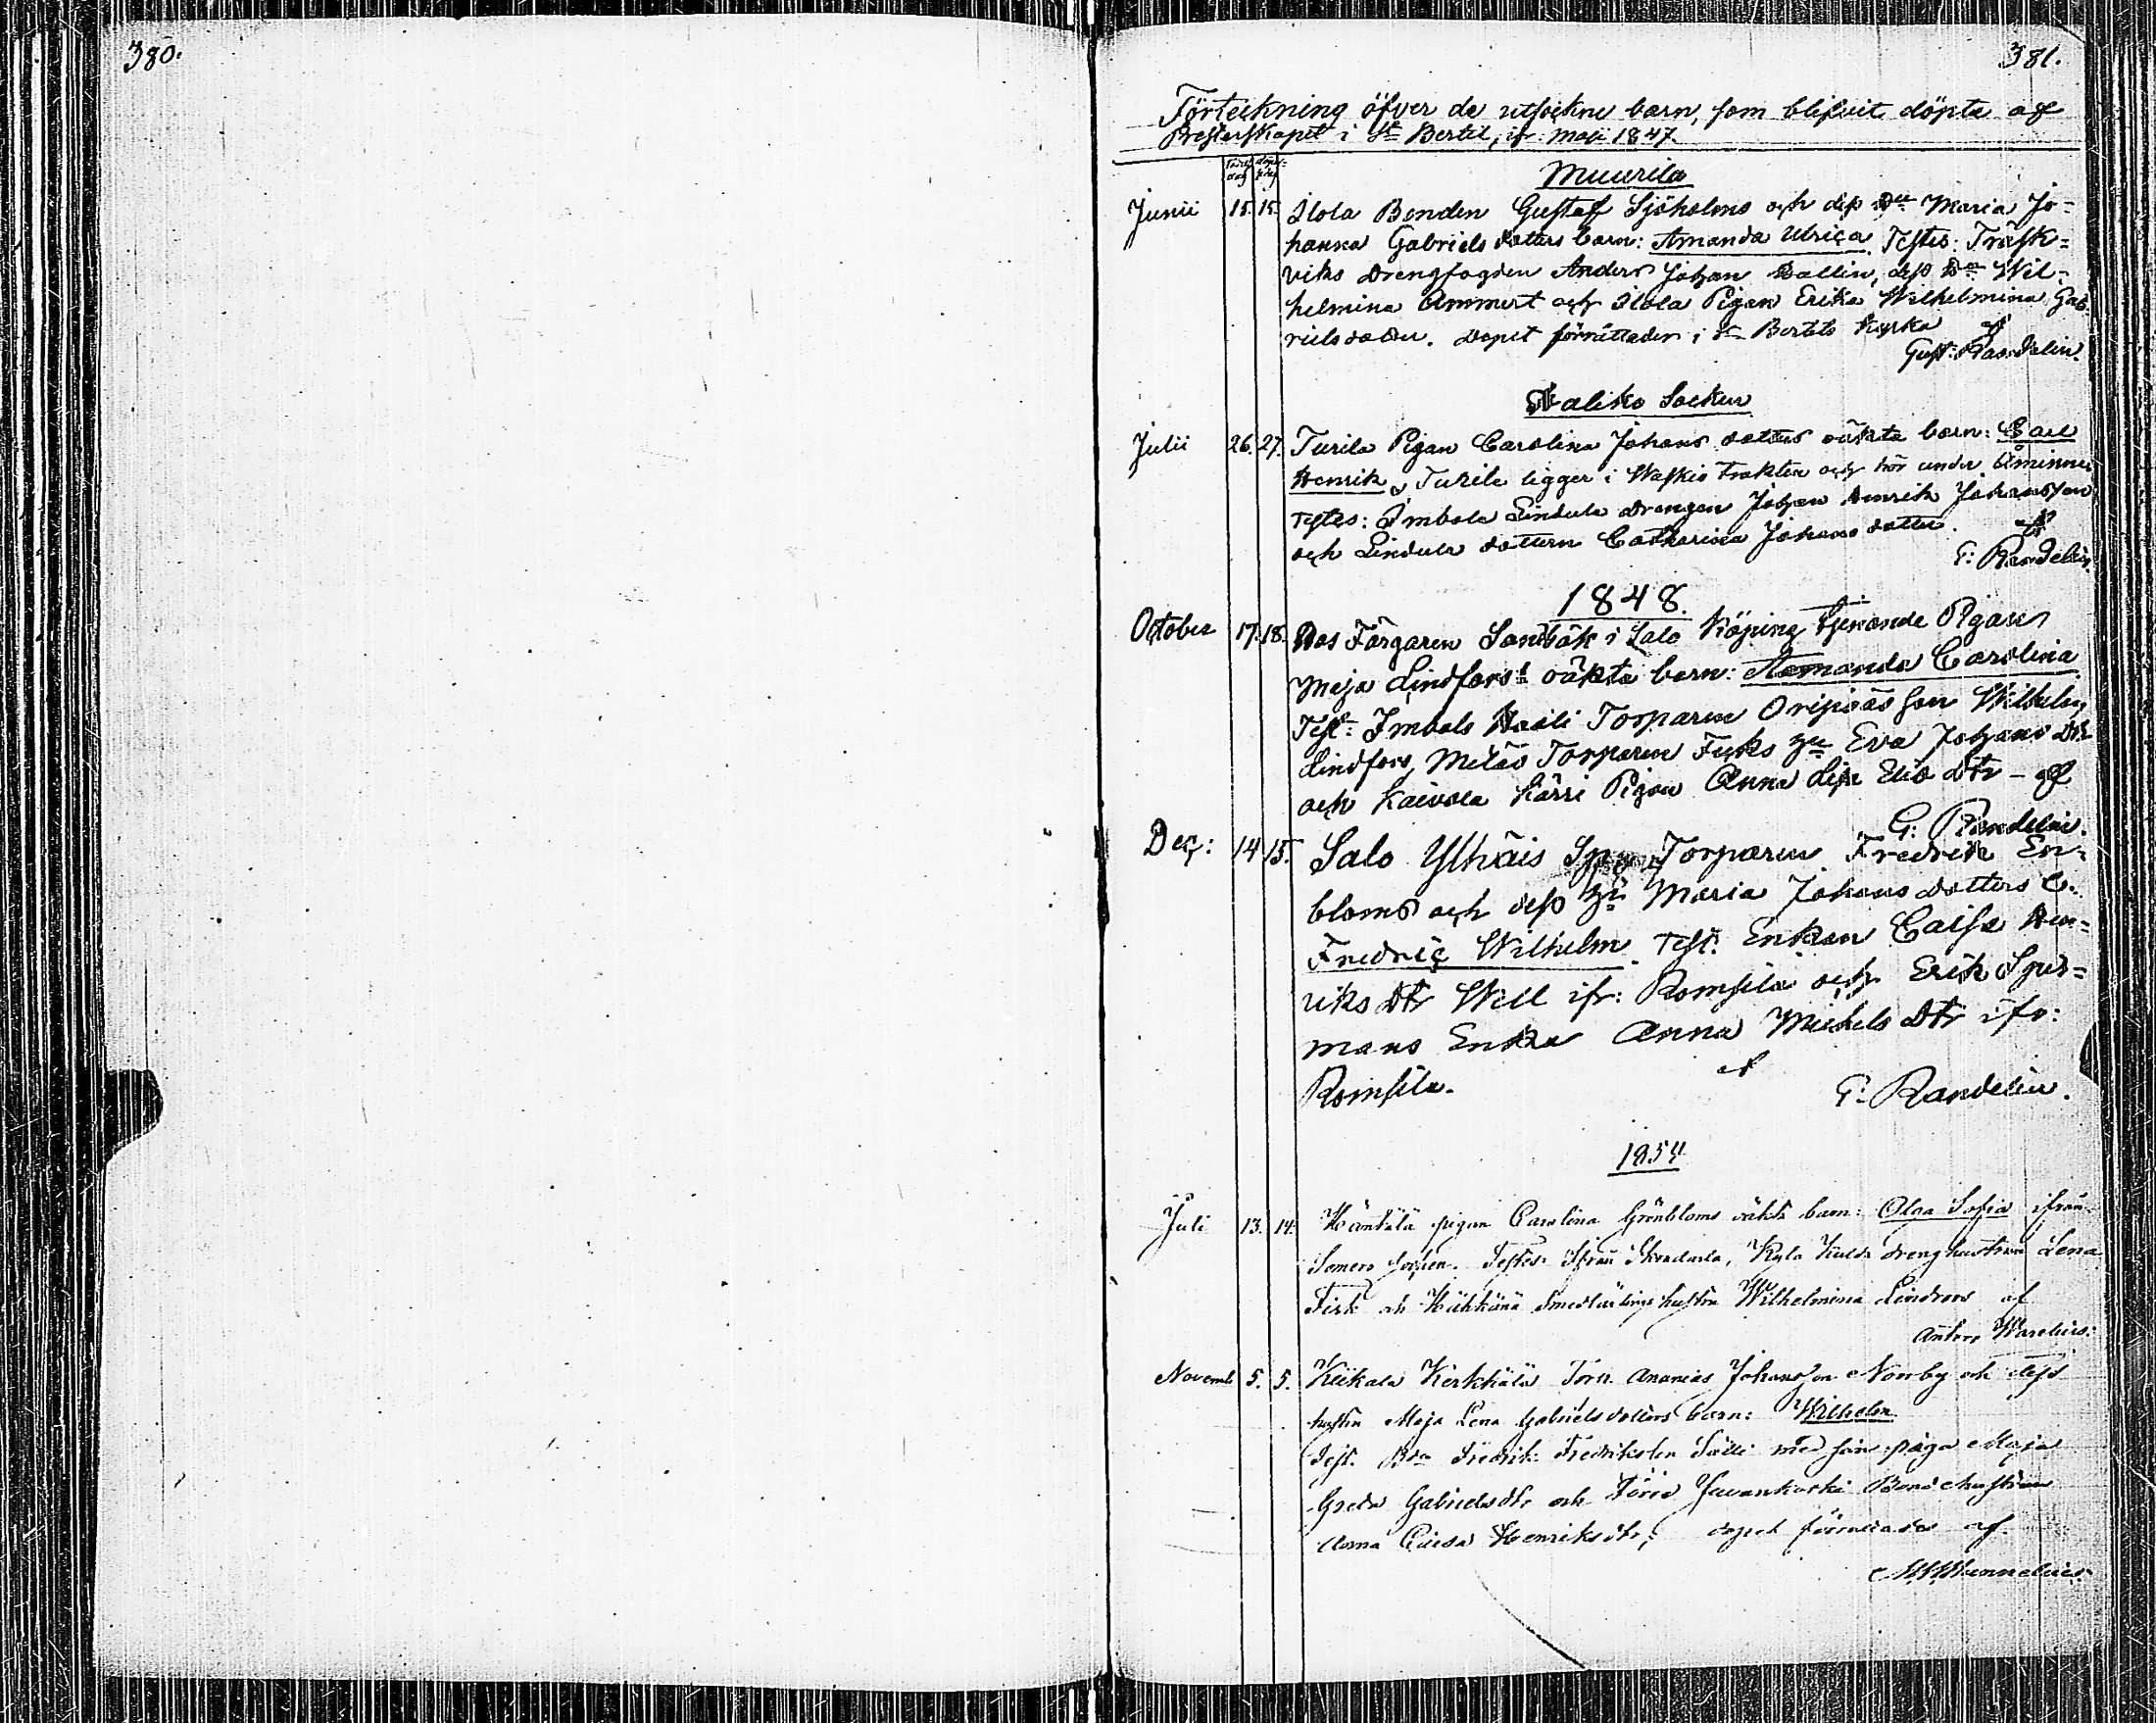 380.
381.
Förteckning öfver de utsockne barn, som blifvit döpte af
Presterskapet i St Bertil, ifr: Maji 1847.
Muurila
Junii 15. 15. Ilola Bonden Gustaf Sjöholms och dess Hu Maria Jo-
hanna Gabriels dotters barn: Amanda Ulrica Testes: Träsk-
viks Drengfogden Anders Johan Dallin, dess Hu Wil-
helmina Ammert och Ilola Pigan Erika Wilhelmina Gab-
riels dotter. Dopet förrättades i St Bertils Kyrka af
Gust: Randelin.
Haliko Socken
Julii 26. 27. Turila Pigan Carolina Johans dotters oäkta barn: Carl
Henrik, Turila ligger i Waskio Trakten och hör under Åminne
Testes: Imbola Lindula Drengen Johan Henrik Johansson
och Lindula dottern Catharina Johans dotter. af
G: Randelin.
1848.
October 17. 18. Hos Färgaren Sandbäk i Salo Köping tjenande Pigan
Maja Lindfors's oäkta barn: Amanda Carolina
Test: Imbola Haali Torparen Oripääs son Wilhelm
Lindfors, Torparen Fuks Hu Eva Johans Dtr
och Kaivola Kärri Pigan Anna Lisa Eliæ dtr – af
G: Randelin.
Dec: 14 15. Salo Ylhäis Torparen Fredrik En-
bloms och dess Hu Maria Johans dotters b.
Fredric Wilhelm. Test: Enkan Caisa Hen-
riks Dtr Well ifr: Romsila och Erik Spur-
mans Enka Anna Michels Dtr ifr:
Romsila. af
G: Randelin.
1854
Juli 13. 14. Häntälä pigan Carolina Grönbloms oäkta barn: Olga Sofia ifrån
Somero socken. Testes: ifrån Kyla drenghustrun Lena
Fisk och smedlärlings hustru Wilhelmina Lindroos af
Anders
Novemb 5. 5. Kiikala Kerkkälä Torp. Ananias Johansson Norrby och dess
hustru Maja Lena Gabrielsdotters barn: Wilhelm
Test. Bdn Fredrik Fredriksson Sälli med sin piga Maja
Greta Gabrielsdtr och Juvankoski Bondehustrun
Anna Caisa Henriksdtr, dopet förrättades af